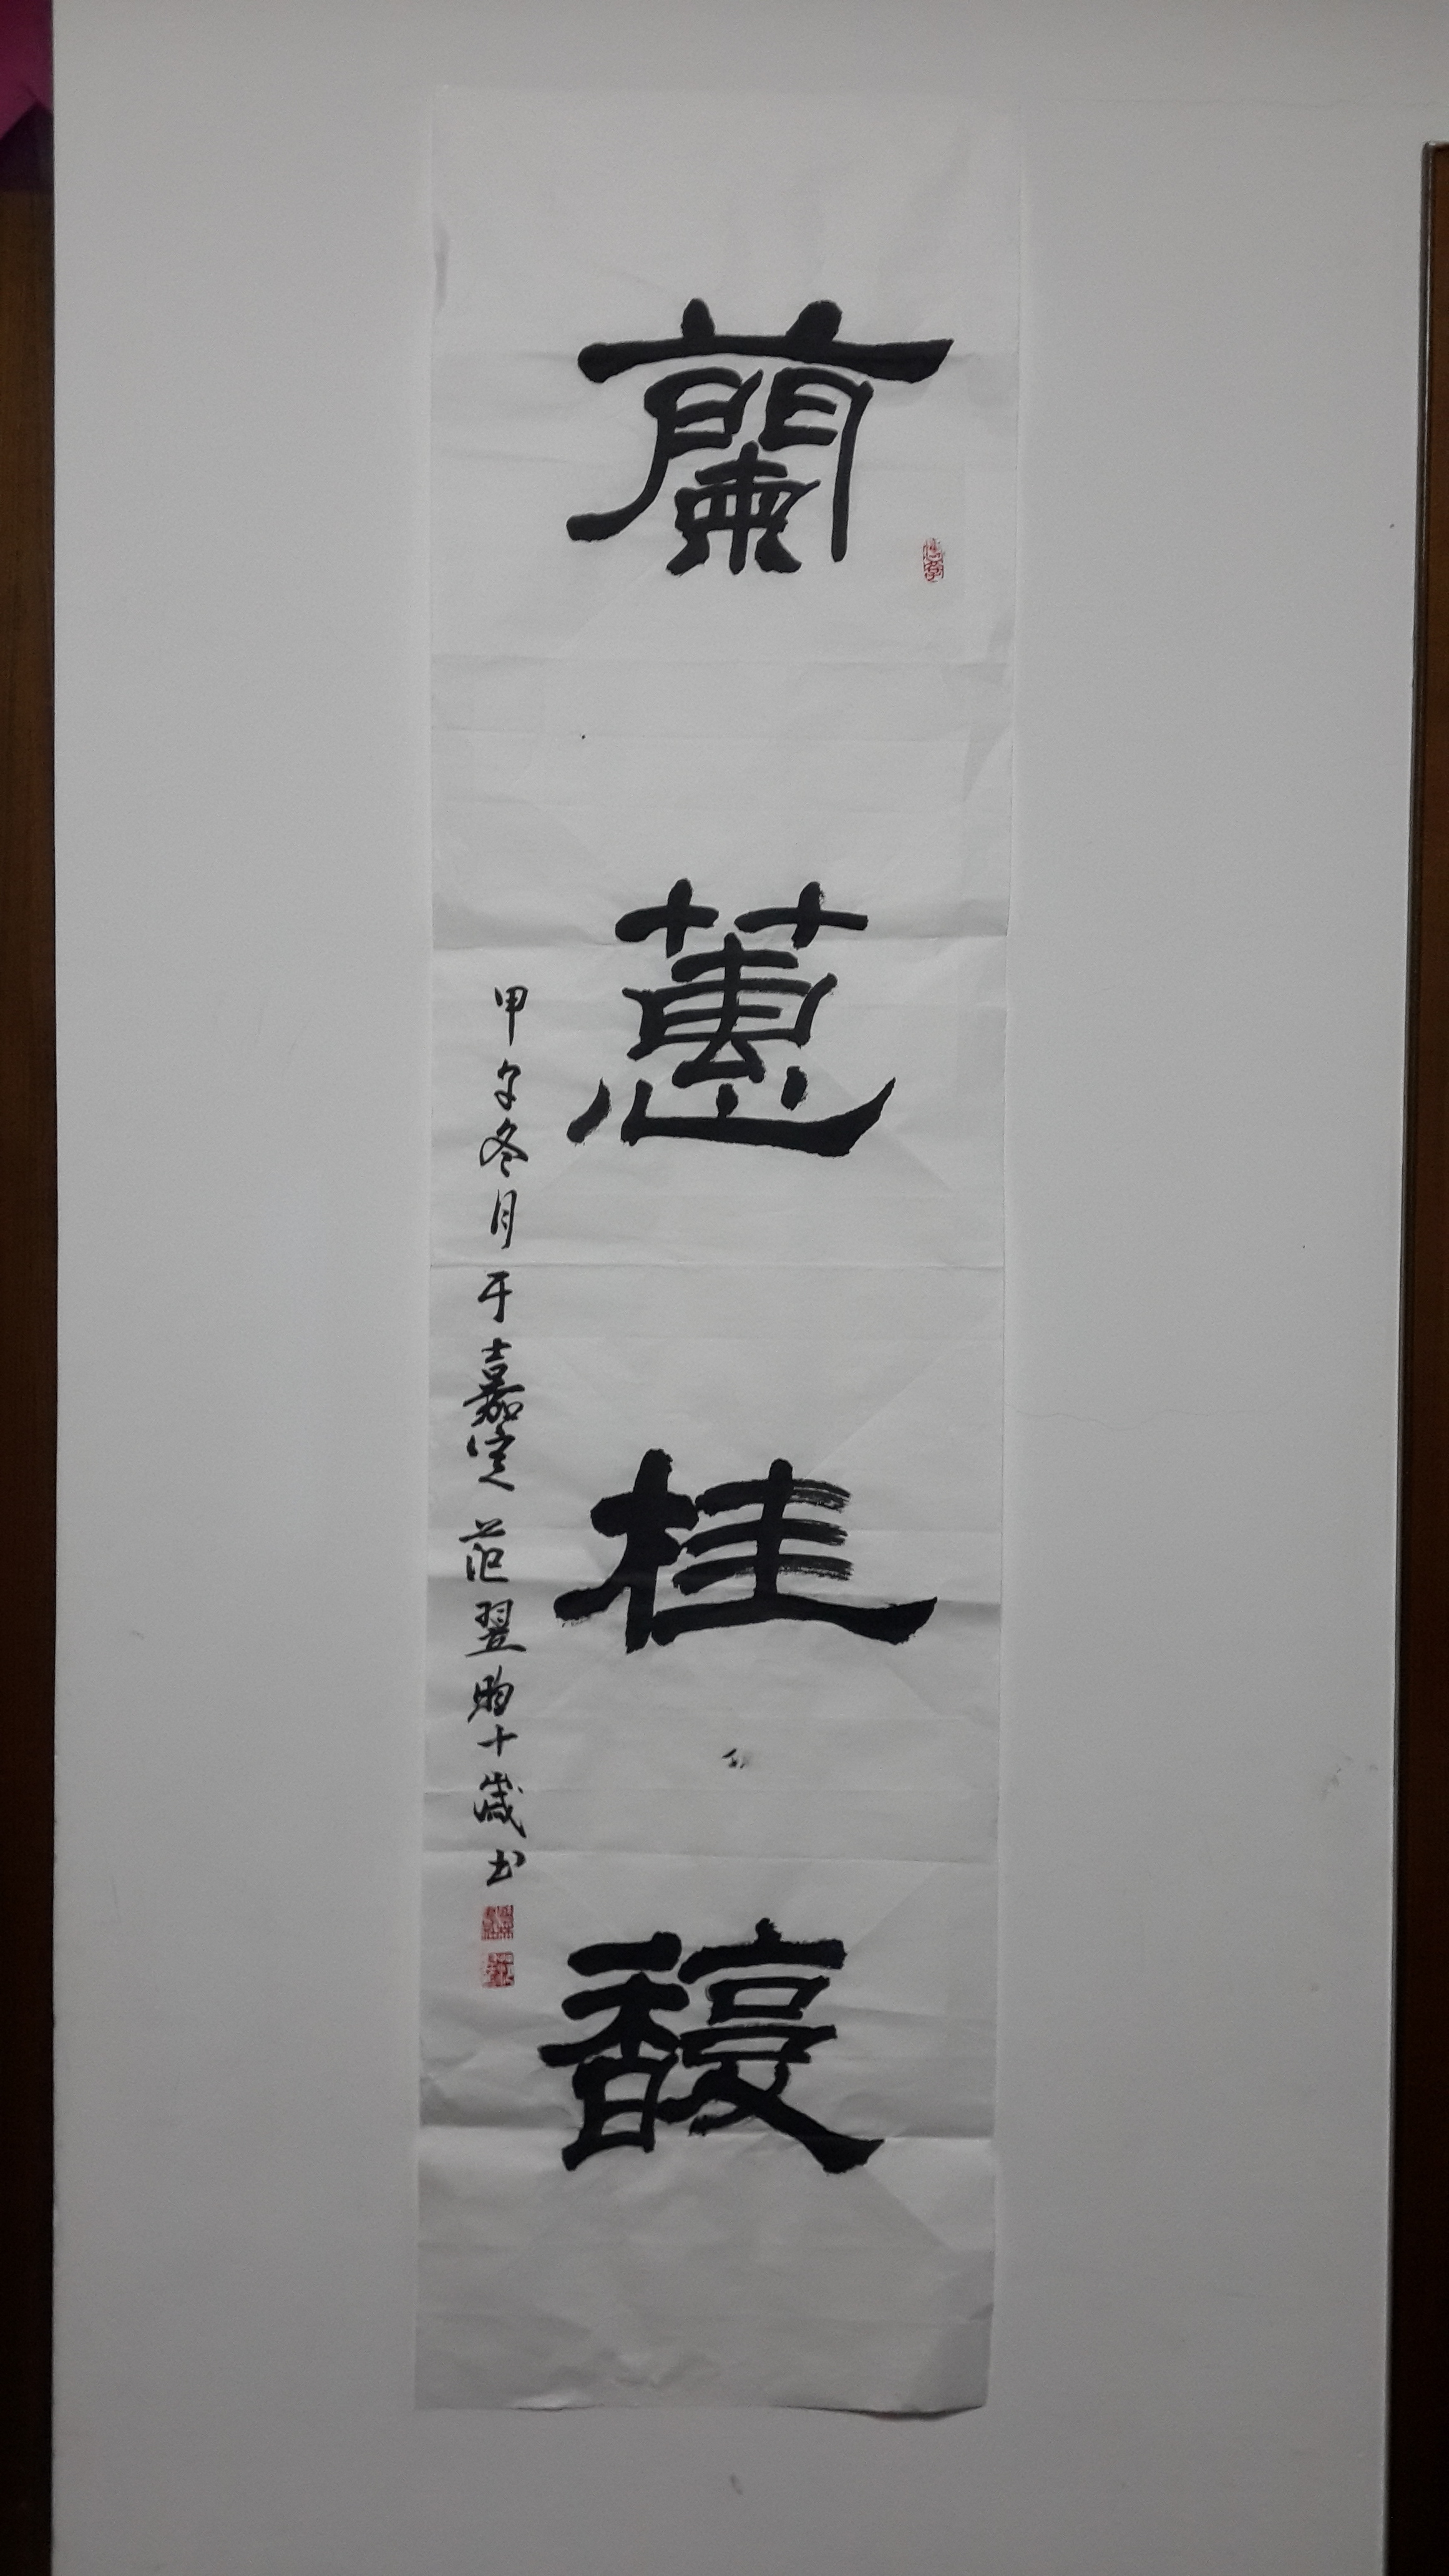 蘭蕙桂馥
甲午冬月于嘉定范翌昀十歲书